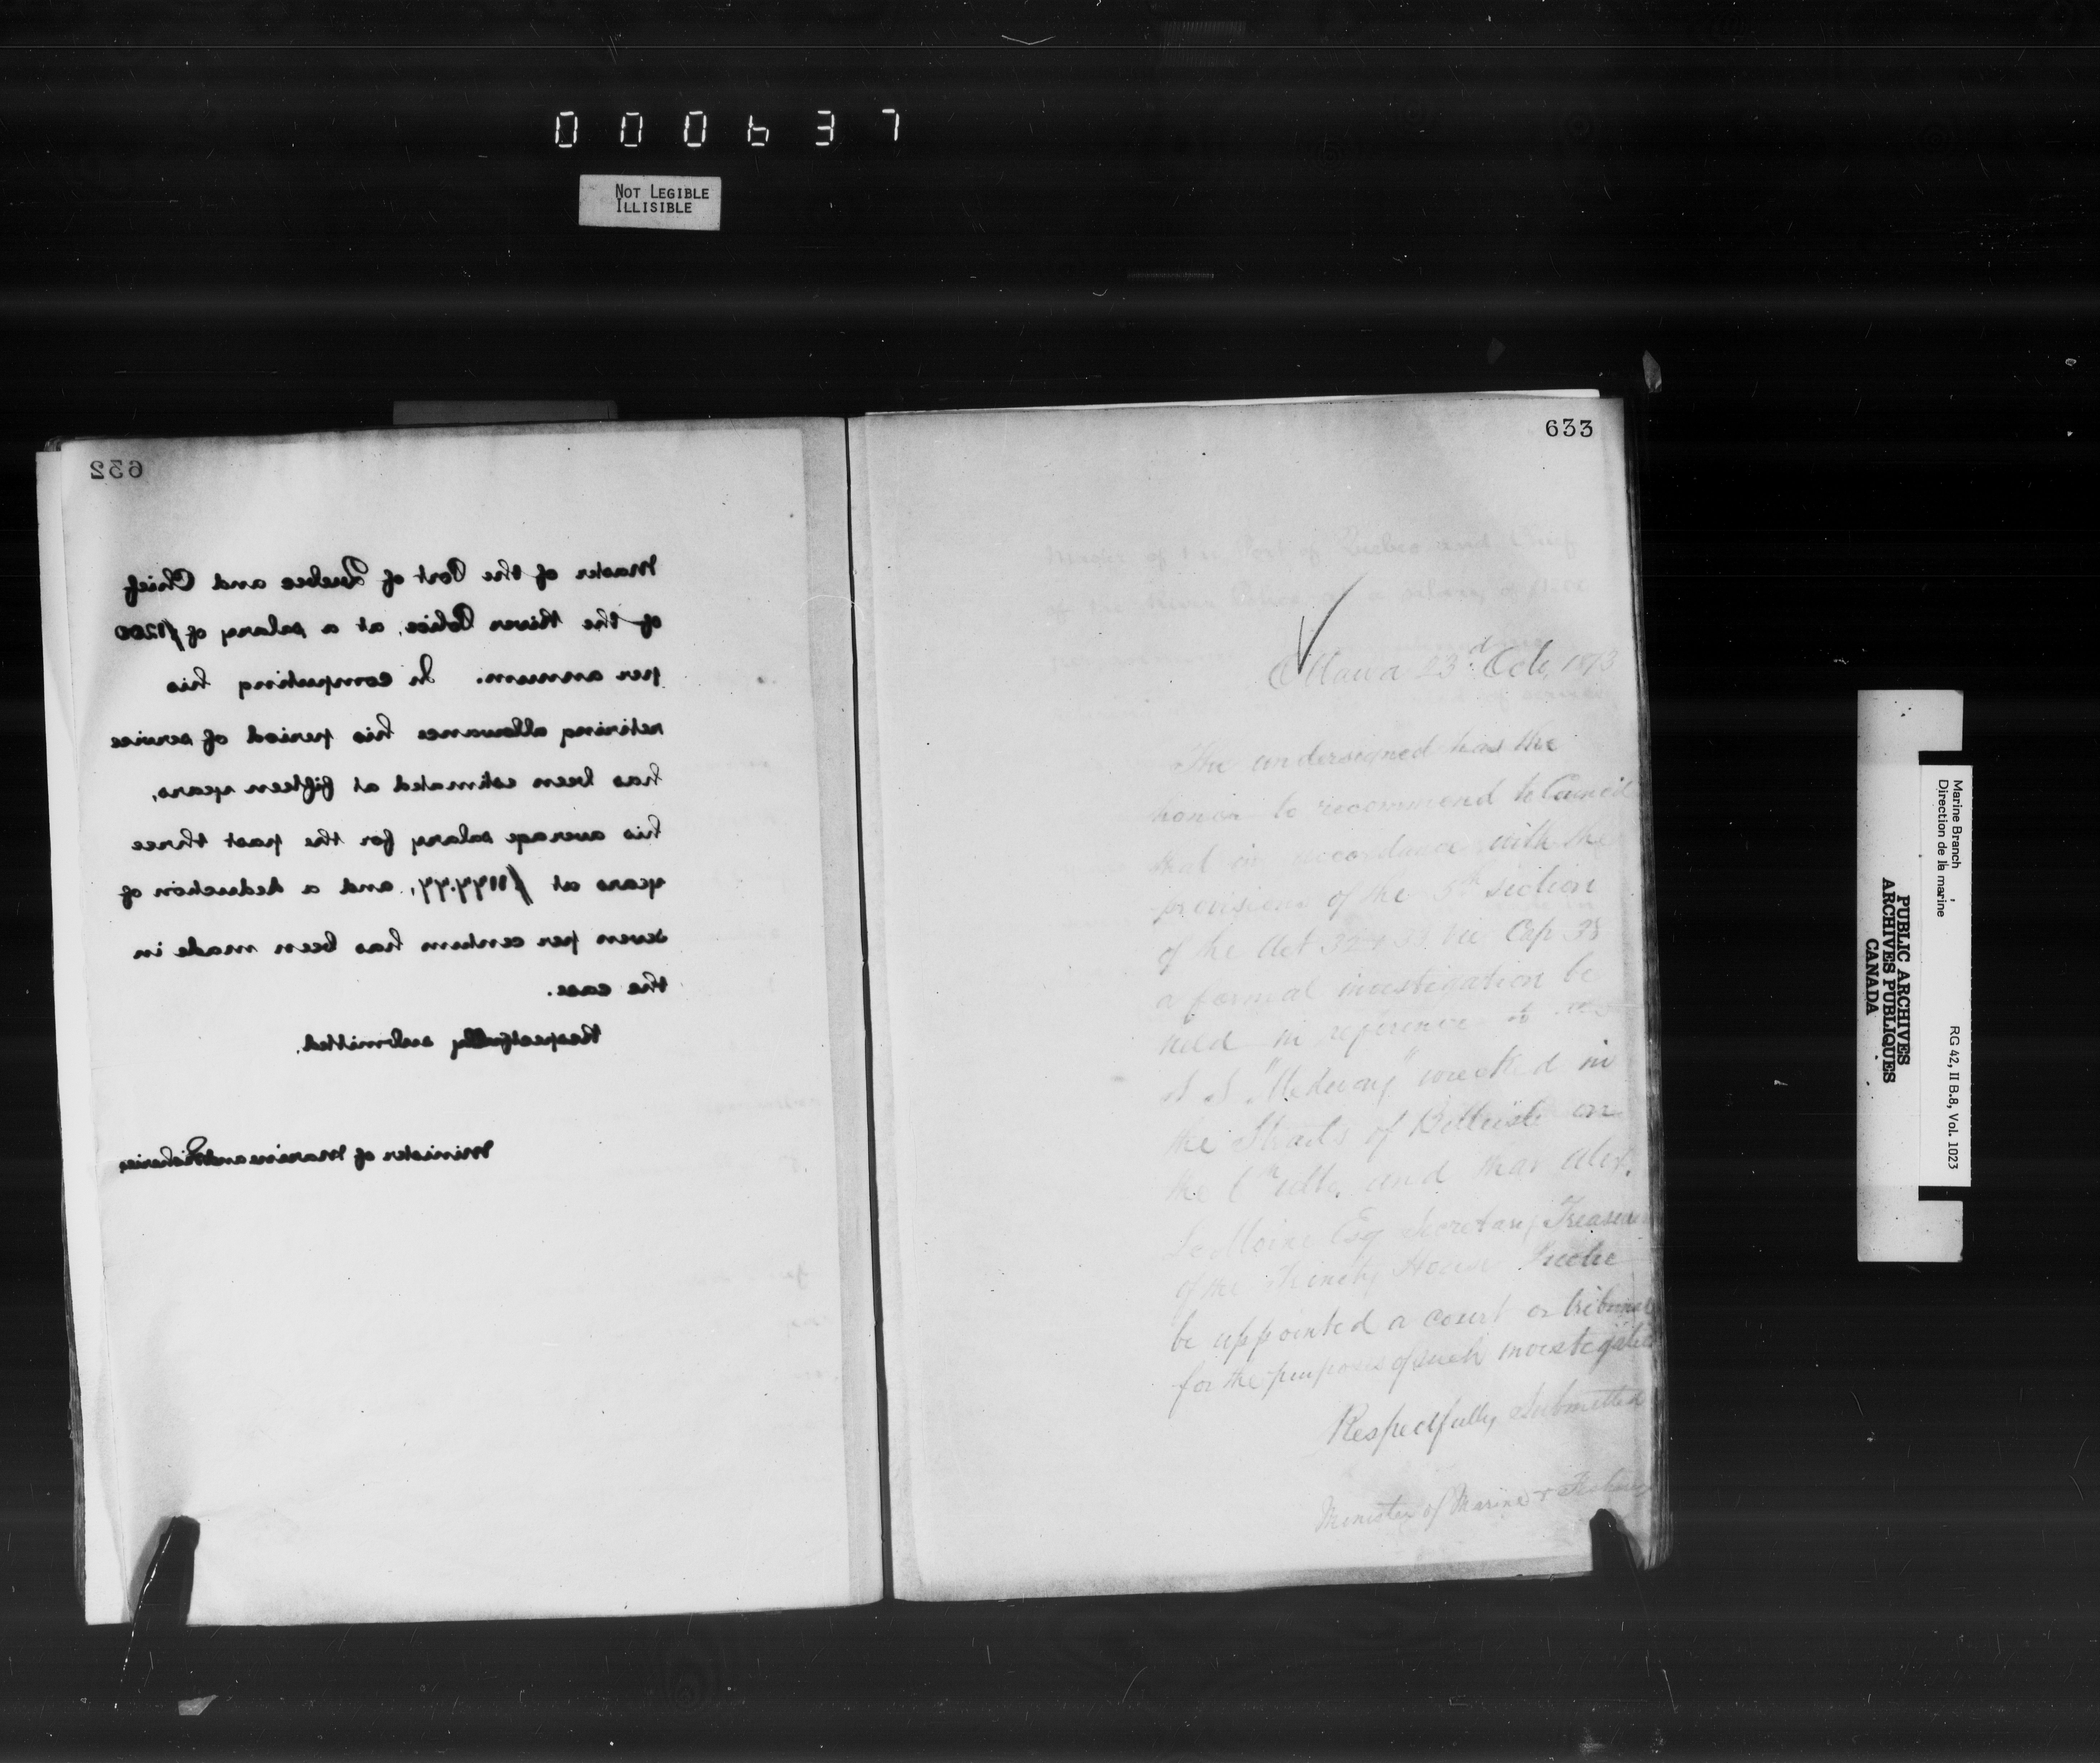 000637
NOT LEGIBLE
ILLISIBLE
632
Master of the Port of Quebec and Chief
of the River Police, at a salary of $1200
per annum. In computing his
retiring allowance his period of service
has been estimated at fifteen years,
his average salary for the past three
years at $1177.77, and a deduction of
seven per centum has been made in
the case.
Respectfully submitted.
Minister of Marine and Fisheries
633
Ottawa 23rd Oct. 1873
The undersigned has the
honor to recommend to Council
that in accordance with the
provisions of the 5th section
of the Act 32 & 33 Vic Cap 38
a formal investigation be
held in reference to
S S "Medway" wrecked in
the Straits of Belleisle on
the 6th ulto, and that Alex.
LeMoine Esq Secretary Treasurer
of the Trinity House Quebec
be appointed a court or tribunal
for the purposes of such investigation
Respectfully Submitted
Minister of Marine & Fisheries
Marine Branch
Direction de la marine
RG 42, II B.8, Vol. 1023
PUBLIC ARCHIVES
ARCHIVES PUBLIQUES
CANADA